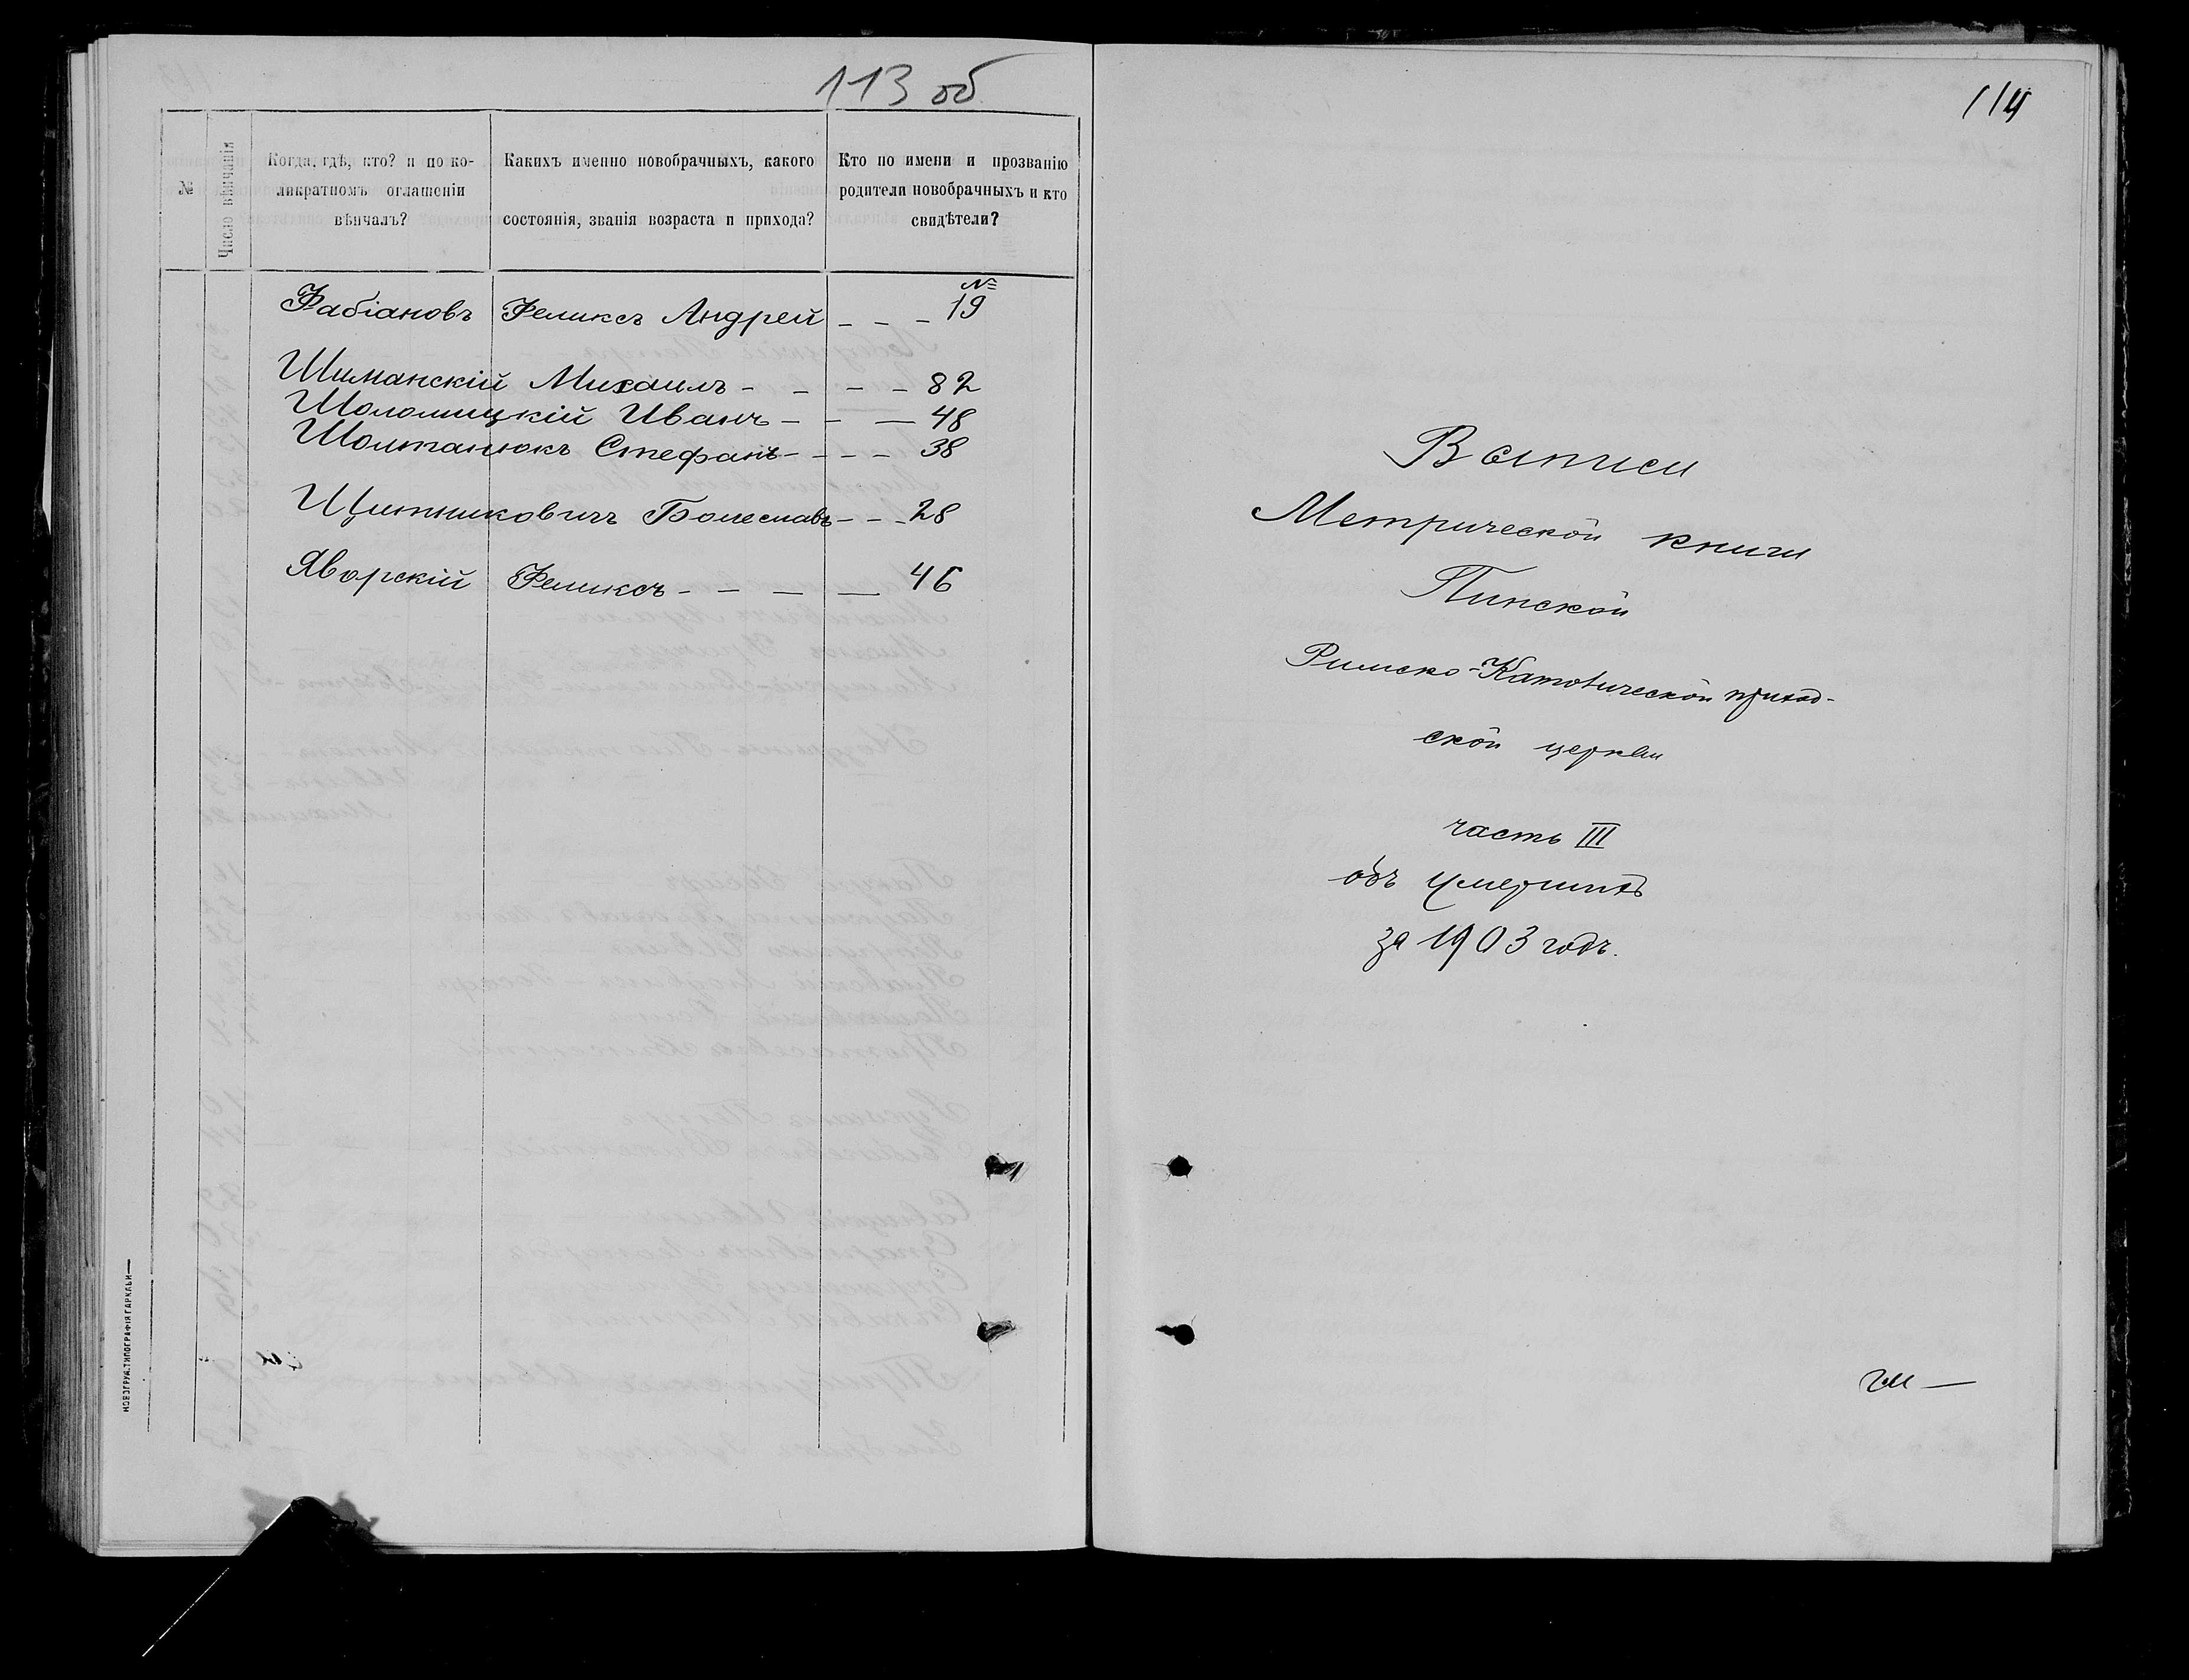 113 об
№
Число вѣнчанія
Когда, гдѣ, кто? и по ко-
ликратномъ оглашеніи
вѣнчалъ?
Какихъ именно новобрачныхъ, какого
состоянія, званія возраста и прихода?
Кто по имени и прозванію
родители новобрачныхъ и кто
свидѣтели?
№
Фабіановъ Феликсъ Андрей - - - 19
Шиманскій Михаилъ - - - - 82
Шоломицкій Иванъ - - — 48
Шолтанюкъ Стефанъ - - - - 38
Щитниковичъ Болеславъ - - - 28
Яворскій Феликсъ - - — — 46
НОВОГРУД. ТИПОГРАФІЯ ГАРКАВИ
114
Выписи
Метрической книги
Пинской
Римско-Католической приход-
ской церкви
часть III
объ умершихъ
за 1903 годъ.